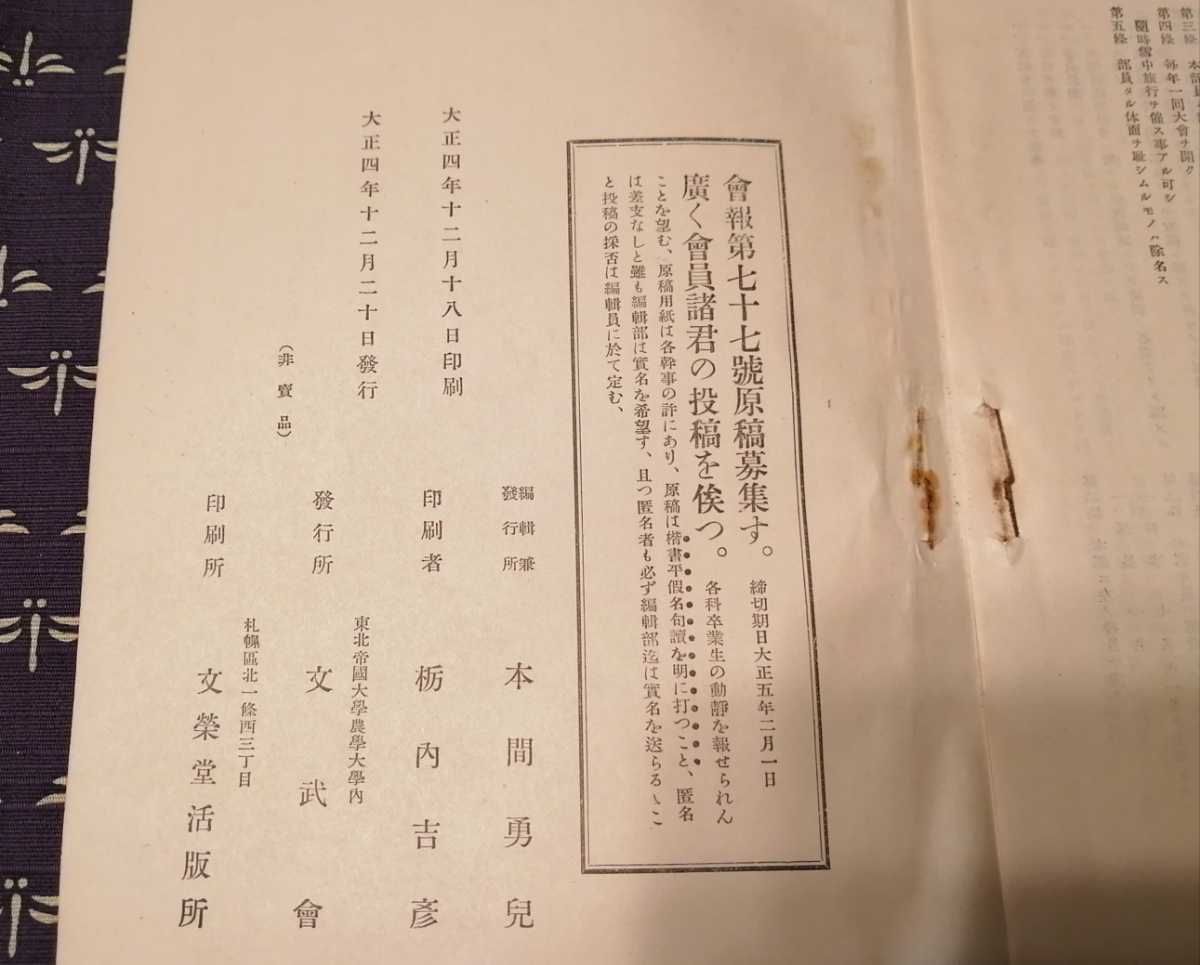 第三條
第四條 每年一回大會ヲ開ク
隨時雪中旅行ヲ催ス事アル可シ
第五條 部員タル体面ヲ耻シムルモノハ除名ス
會報第七十七號原稿募集す。 締切期日大正五年二月一日
廣く會員諸君の投稿を俟つ。 各科卒業生の動靜を報せられん
ことを望む、原稿用紙は各幹事の許にあり、原稿は楷書平假名句讀を明に打つこと、匿名
は差支なしと雖も編輯部は實名を希望す、且つ匿名者も必ず編輯部迄は實名を送らるゝこ
と投稿の採否は編輯員に於て定む、
大正四年十二月十八日印刷
大正四年十二月二十日發行
(非賣品)
編輯兼
發行所 本間勇兒
印刷者 栃內吉彥
東北帝國大學農學大學內
發行所 文武會
札幌區北一條西三丁目
印刷所 文榮堂活版所